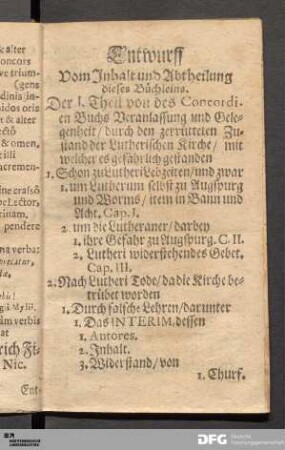 & alter
oncors
ve trium-
gens
dinis in-
aidos oris
t & alter
ectò
& omen,
acremen-
ine crassô
be Lector,
rinam,
pendere
na verba:
âm verbis
at
rich Fi-
Nic.
Ent-
Entwurff
Vom Inhalt und Abtheilung
dieses Büchleins.
Der I. Theil von des Concordi-
en Buchs Veranlassung und Gele-
genheit / durch den zerrütteten Zu-
stand der Lutherischen Kirche / mit
welcher es gefährlich gestanden
1. Schon zu Lutheri Lebzeiten / und zwar
1. um Lutherum selbst zu Augspurg
und Worms / item in Bann und
Acht, Cap. I.
2. um die Lutheraner / darbey
1. ihre Gefahr zu Augspurg. C. II.
2. Lutheri widerstehendes Gebet,
Cap. III.
2. Nach Lutheri Tode / da die Kirche be-
trübet worden
1. Durch falsche Lehren / darunter
1. Das INTERIM, dessen
1. Autores.
2. Inhalt.
3. Widerstand / von
1. Churf.
DFG Deutsche
Forschungsgemeinschaft